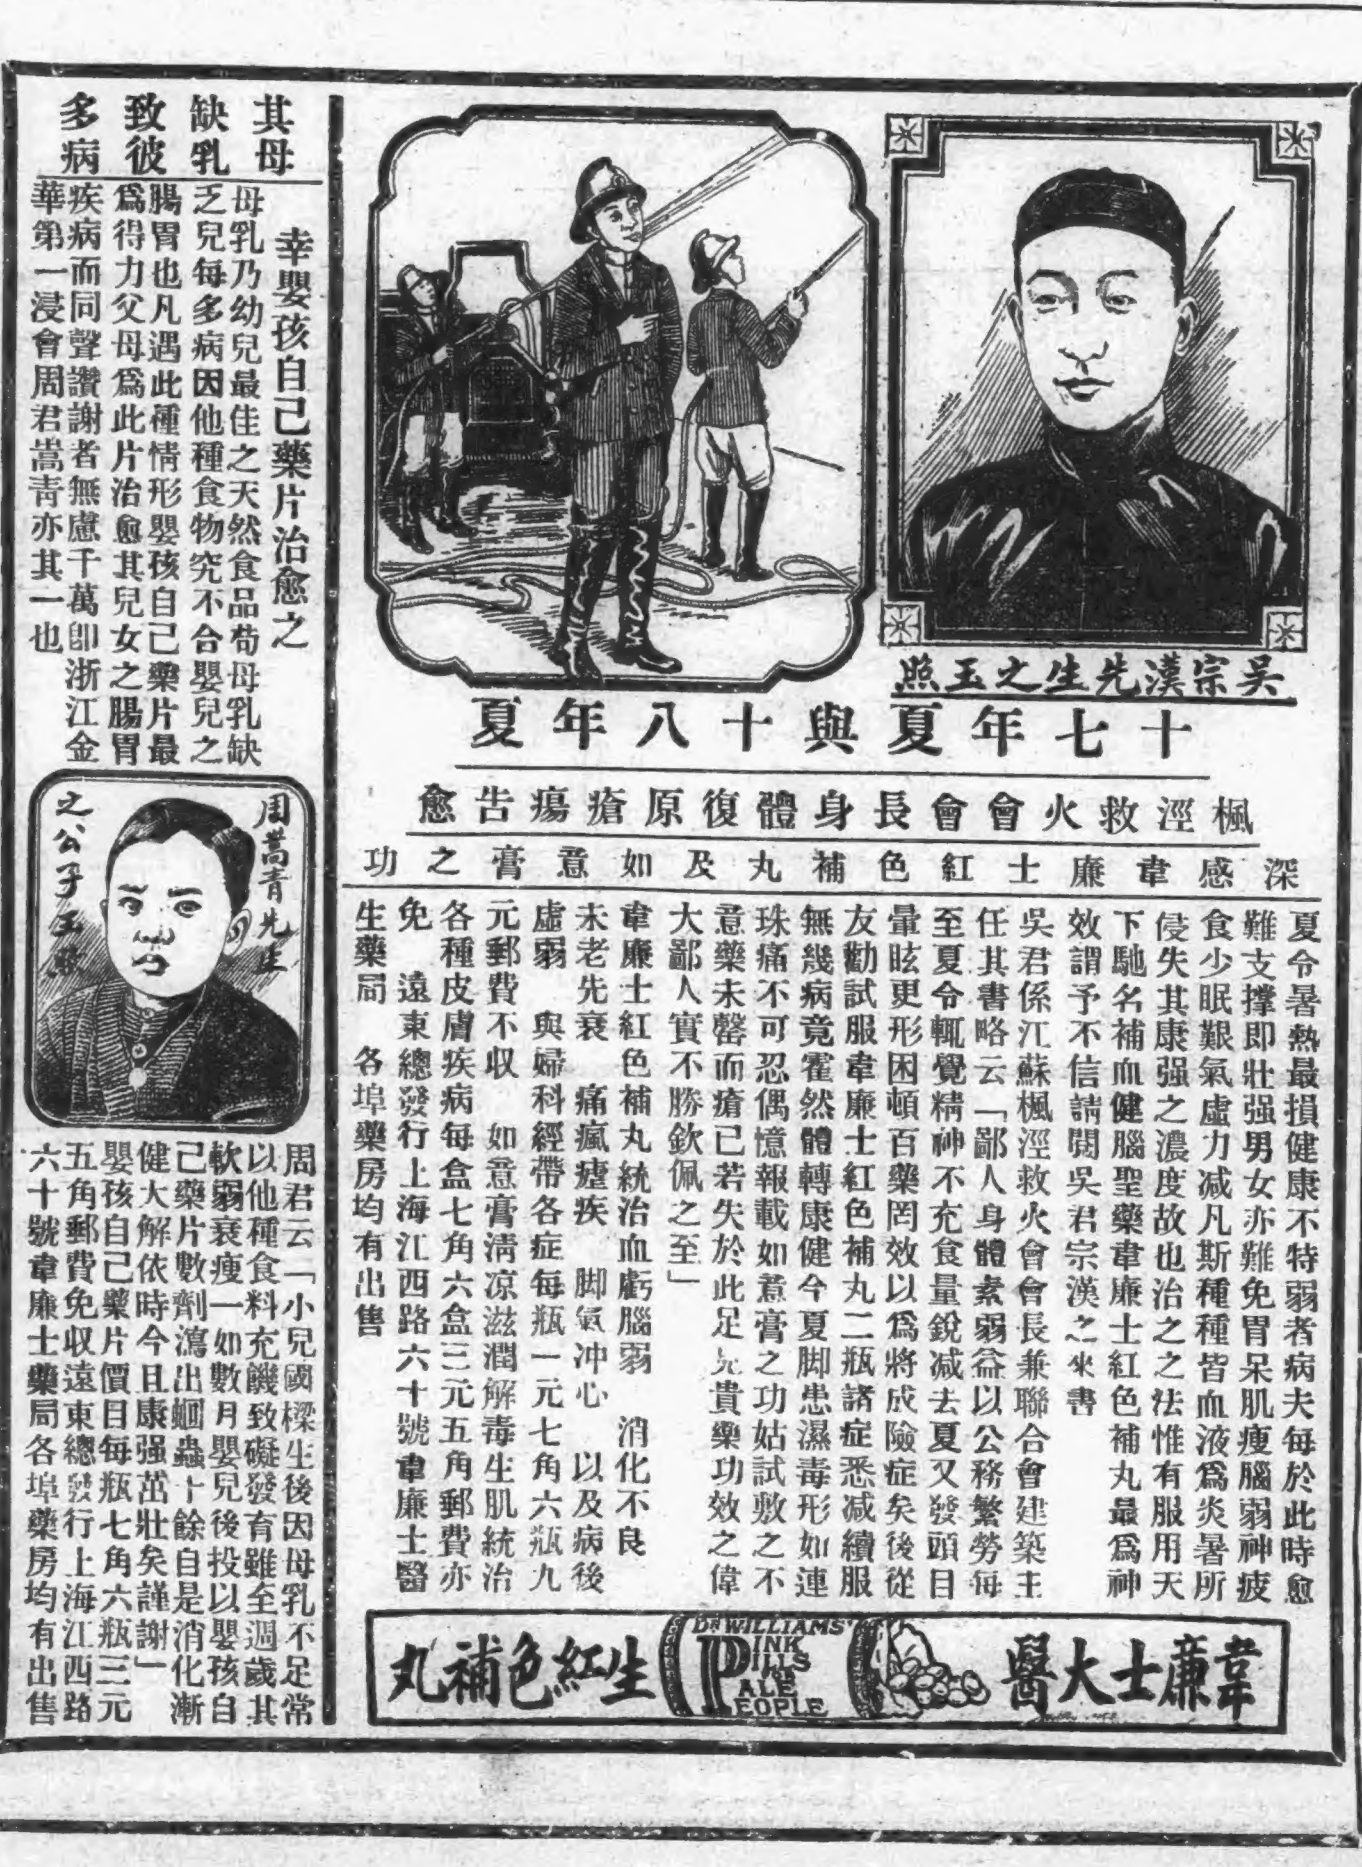 吳宗漢先生之玉照
十七年夏與十八年夏
楓涇救火會會長身體復原瘡瘍告愈
深感韋廉士紅色補丸及如意膏之功
夏令暑熱最損健康不特弱者病夫每於此時愈
難支撐即壯强男女亦難免胃呆肌瘦腦弱神疲
食少眠艱氣虛力減凡斯種種皆血液爲炎暑所
侵失其康强之濃度故也治之之法惟有服用天
下馳名補血健腦聖藥韋廉士紅色補丸最爲神
效謂予不信請閱吳君宗漢之來書
吳君係江蘇楓涇救火會會長兼聯合會建築主
任其書略云「鄙人身體素弱益以公務繁勞每
至夏令輒覺精神不充食量銳減去夏又發頭目
暈眩更形困頓百藥罔效以爲將成險症矣後從
友勸試服韋廉士紅色補丸二瓶諸症悉減續服
無幾病竟霍然體轉康健今夏脚患濕毒形如連
珠痛不可忍偶憶報載如意膏之功姑試敷之不
意藥未罄而瘡已若失於此足見貴藥功效之偉
大鄙人實不勝欽佩之至」
韋廉士紅色補丸統治血虧腦弱 消化不良
未老先衰 痛瘋瘧疾 脚氣冲心 以及病後
虛弱 與婦科經帶各症每瓶一元七角六瓶九
元郵費不収 如意膏淸凉滋潤解毒生肌統治
各種皮膚疾病每盒七角六盒三元五角郵費亦
免 遠東總發行上海江西路六十號韋廉士醫
生藥局 各埠藥房均有出售
韋廉士大醫
Dr WILLIAMS'
PINK
PILLS
PALE
PEOPLE
生紅色補丸
其母
缺乳
致彼
多病
幸嬰孩自己藥片治愈之
母乳乃幼兒最佳之天然食品苟母乳缺
乏兒每多病因他種食物究不合嬰兒之
腸胃也凡遇此種情形嬰孩自己藥片最
爲得力父母爲此片治愈其兒女之腸胃
疾病而同聲讚謝者無慮千萬卽浙江金
華第一浸會周君嵩靑亦其一也
周嵩青先生
之公子玉照
周君云「小兒國樑生後因母乳不足常
以他種食料充饑致礙發育雖至週歲其
軟弱衰瘦一如數月嬰兒後投以嬰孩自
己藥片數劑瀉出蛔蟲十餘自是消化漸
健大解依時今且康强茁壯矣謹謝」
嬰孩自己藥片價目每瓶七角六瓶三元
五角郵費免収遠東總發行上海江西路
六十號韋廉士藥局各埠藥房均有出售